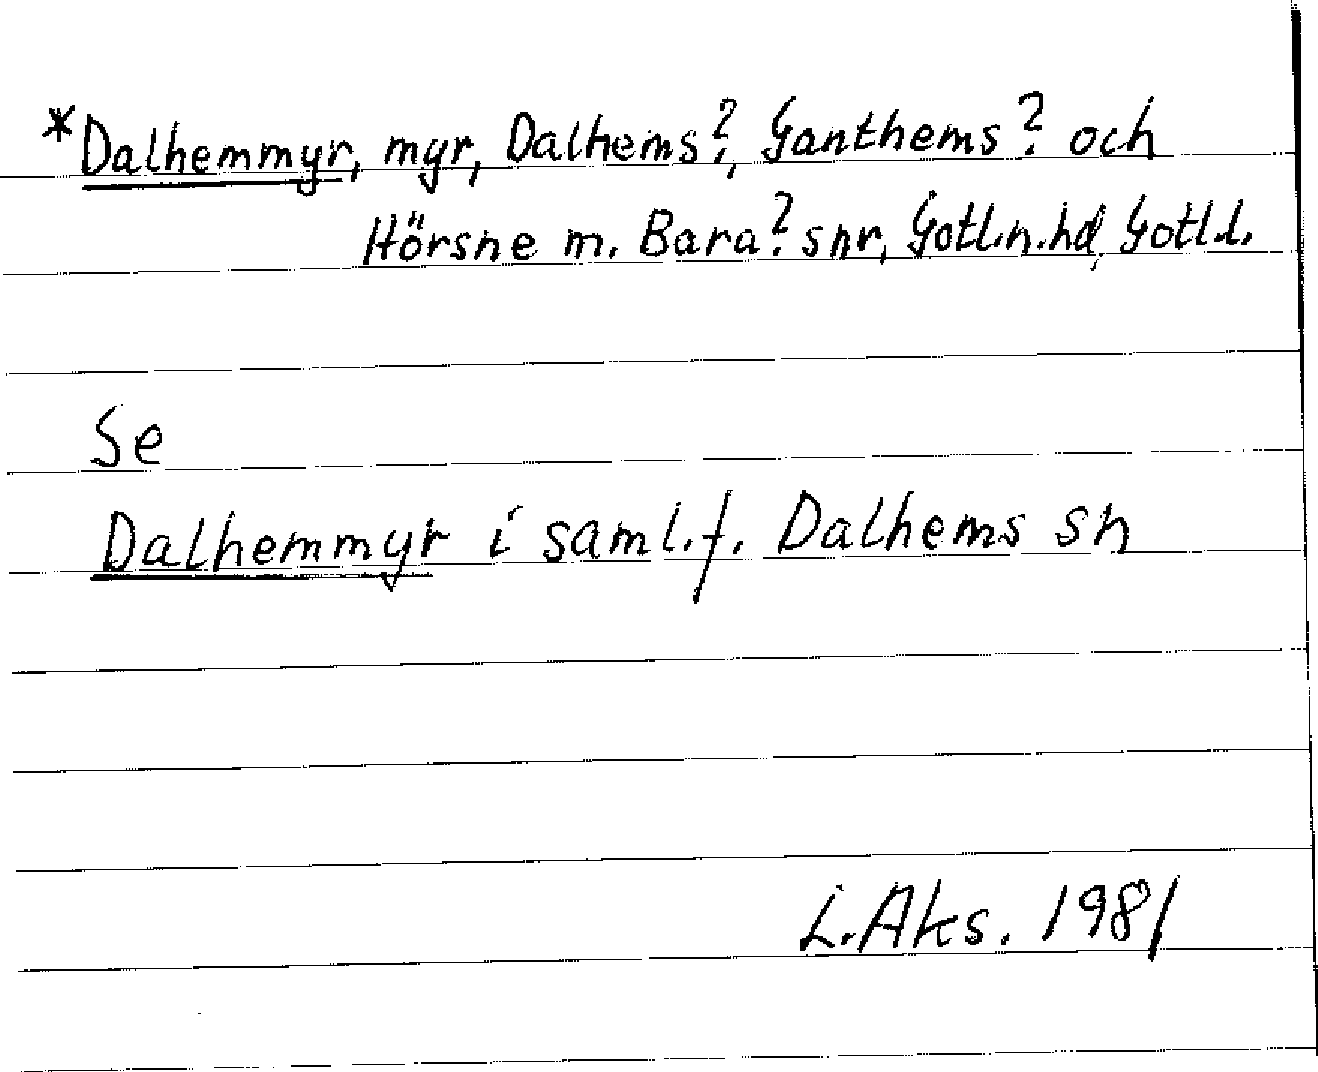 *Dalhemmyr, myr, Dalhems?, Ganthems? och
Hörsne m. Bara? snr, Gotl.n.hd, Gotl.l.
Se
Dalhemmyr i saml. f. Dalhems sn
L.Aks. 1981